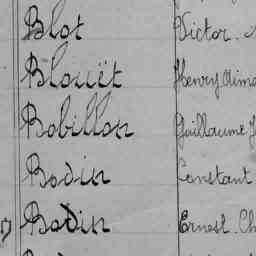 Blot Victor
Blouët Henry
Bobillon Guillaume
Bodin Constant
Bodin Ernest